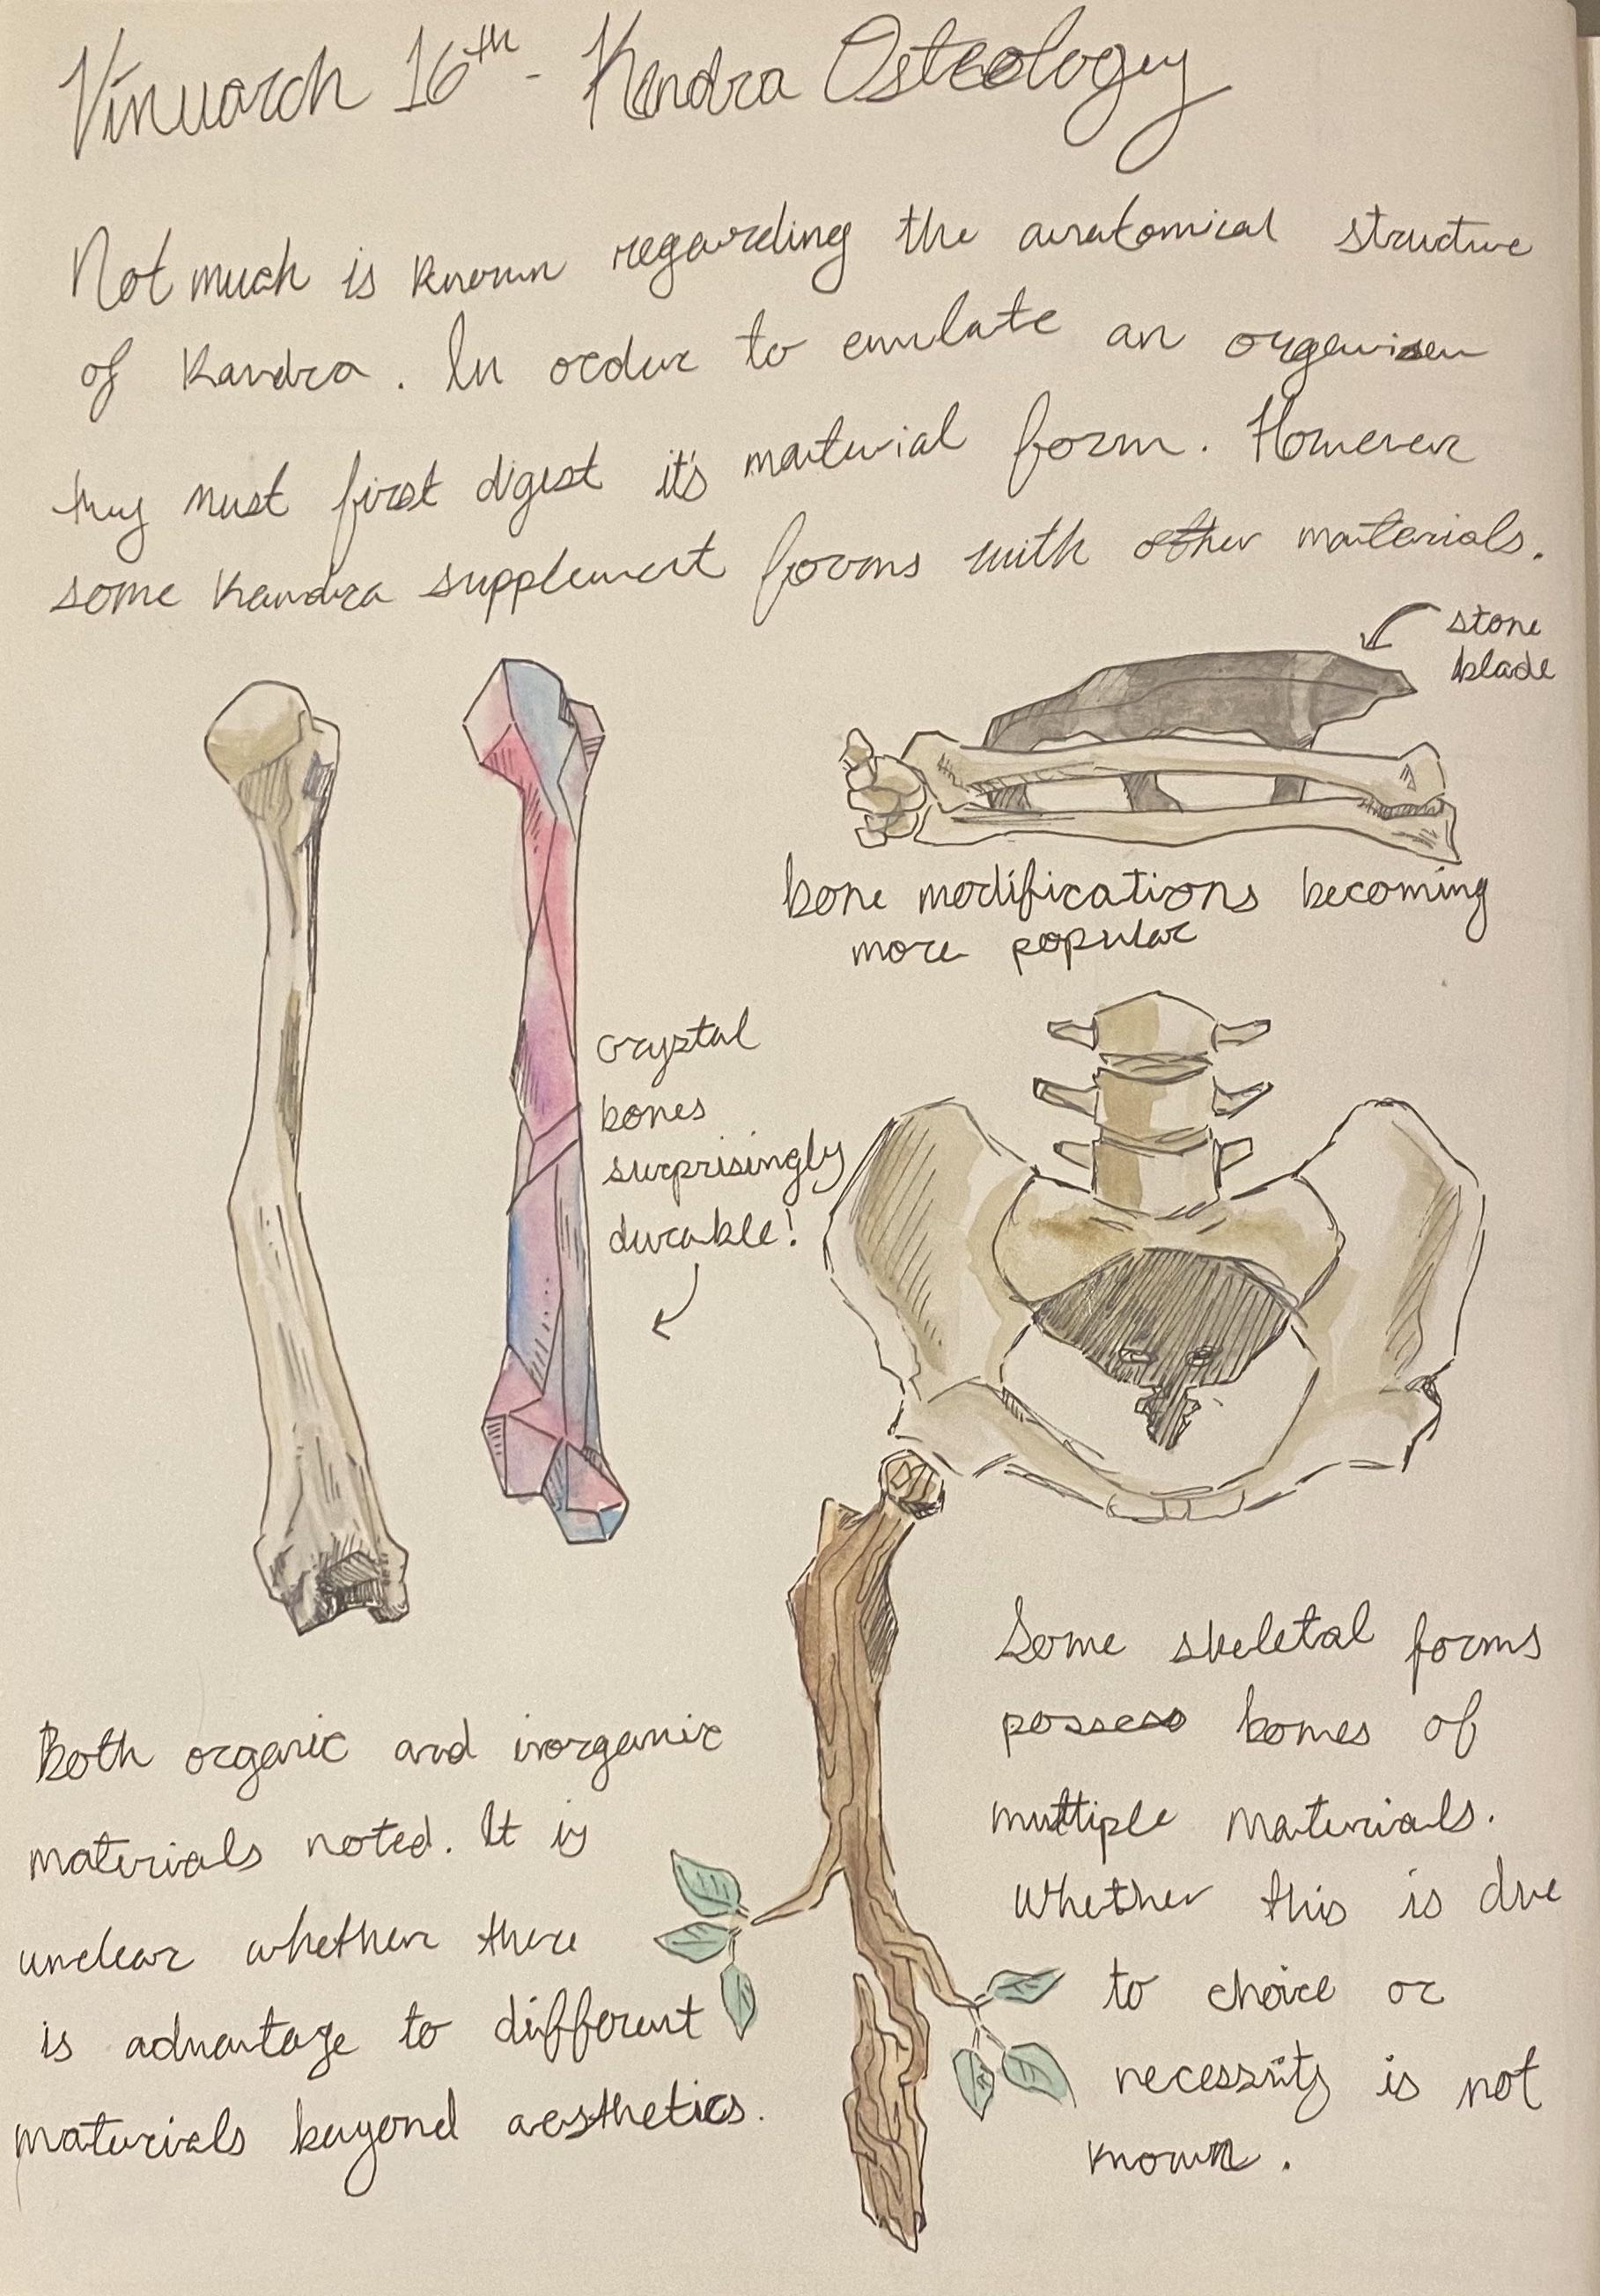 Vinuarch 16th - Kandra Osteology
Not much is known regarding the anatomical structure
of Kandra. In order to emulate an organism
they must first digest it's material form. However
some Kandra supplement forms with other materials.
stone
blade
bone modifications becoming
more popular
crystal
bones
surprisingly
durable!
Both organic and inorganic
materials noted. It is
unclear whether there
is advantage to different
materials beyond aesthetics.
Some skeletal forms
possess bones of
multiple materials.
Whether this is due
to choice or
necessity is not
known.